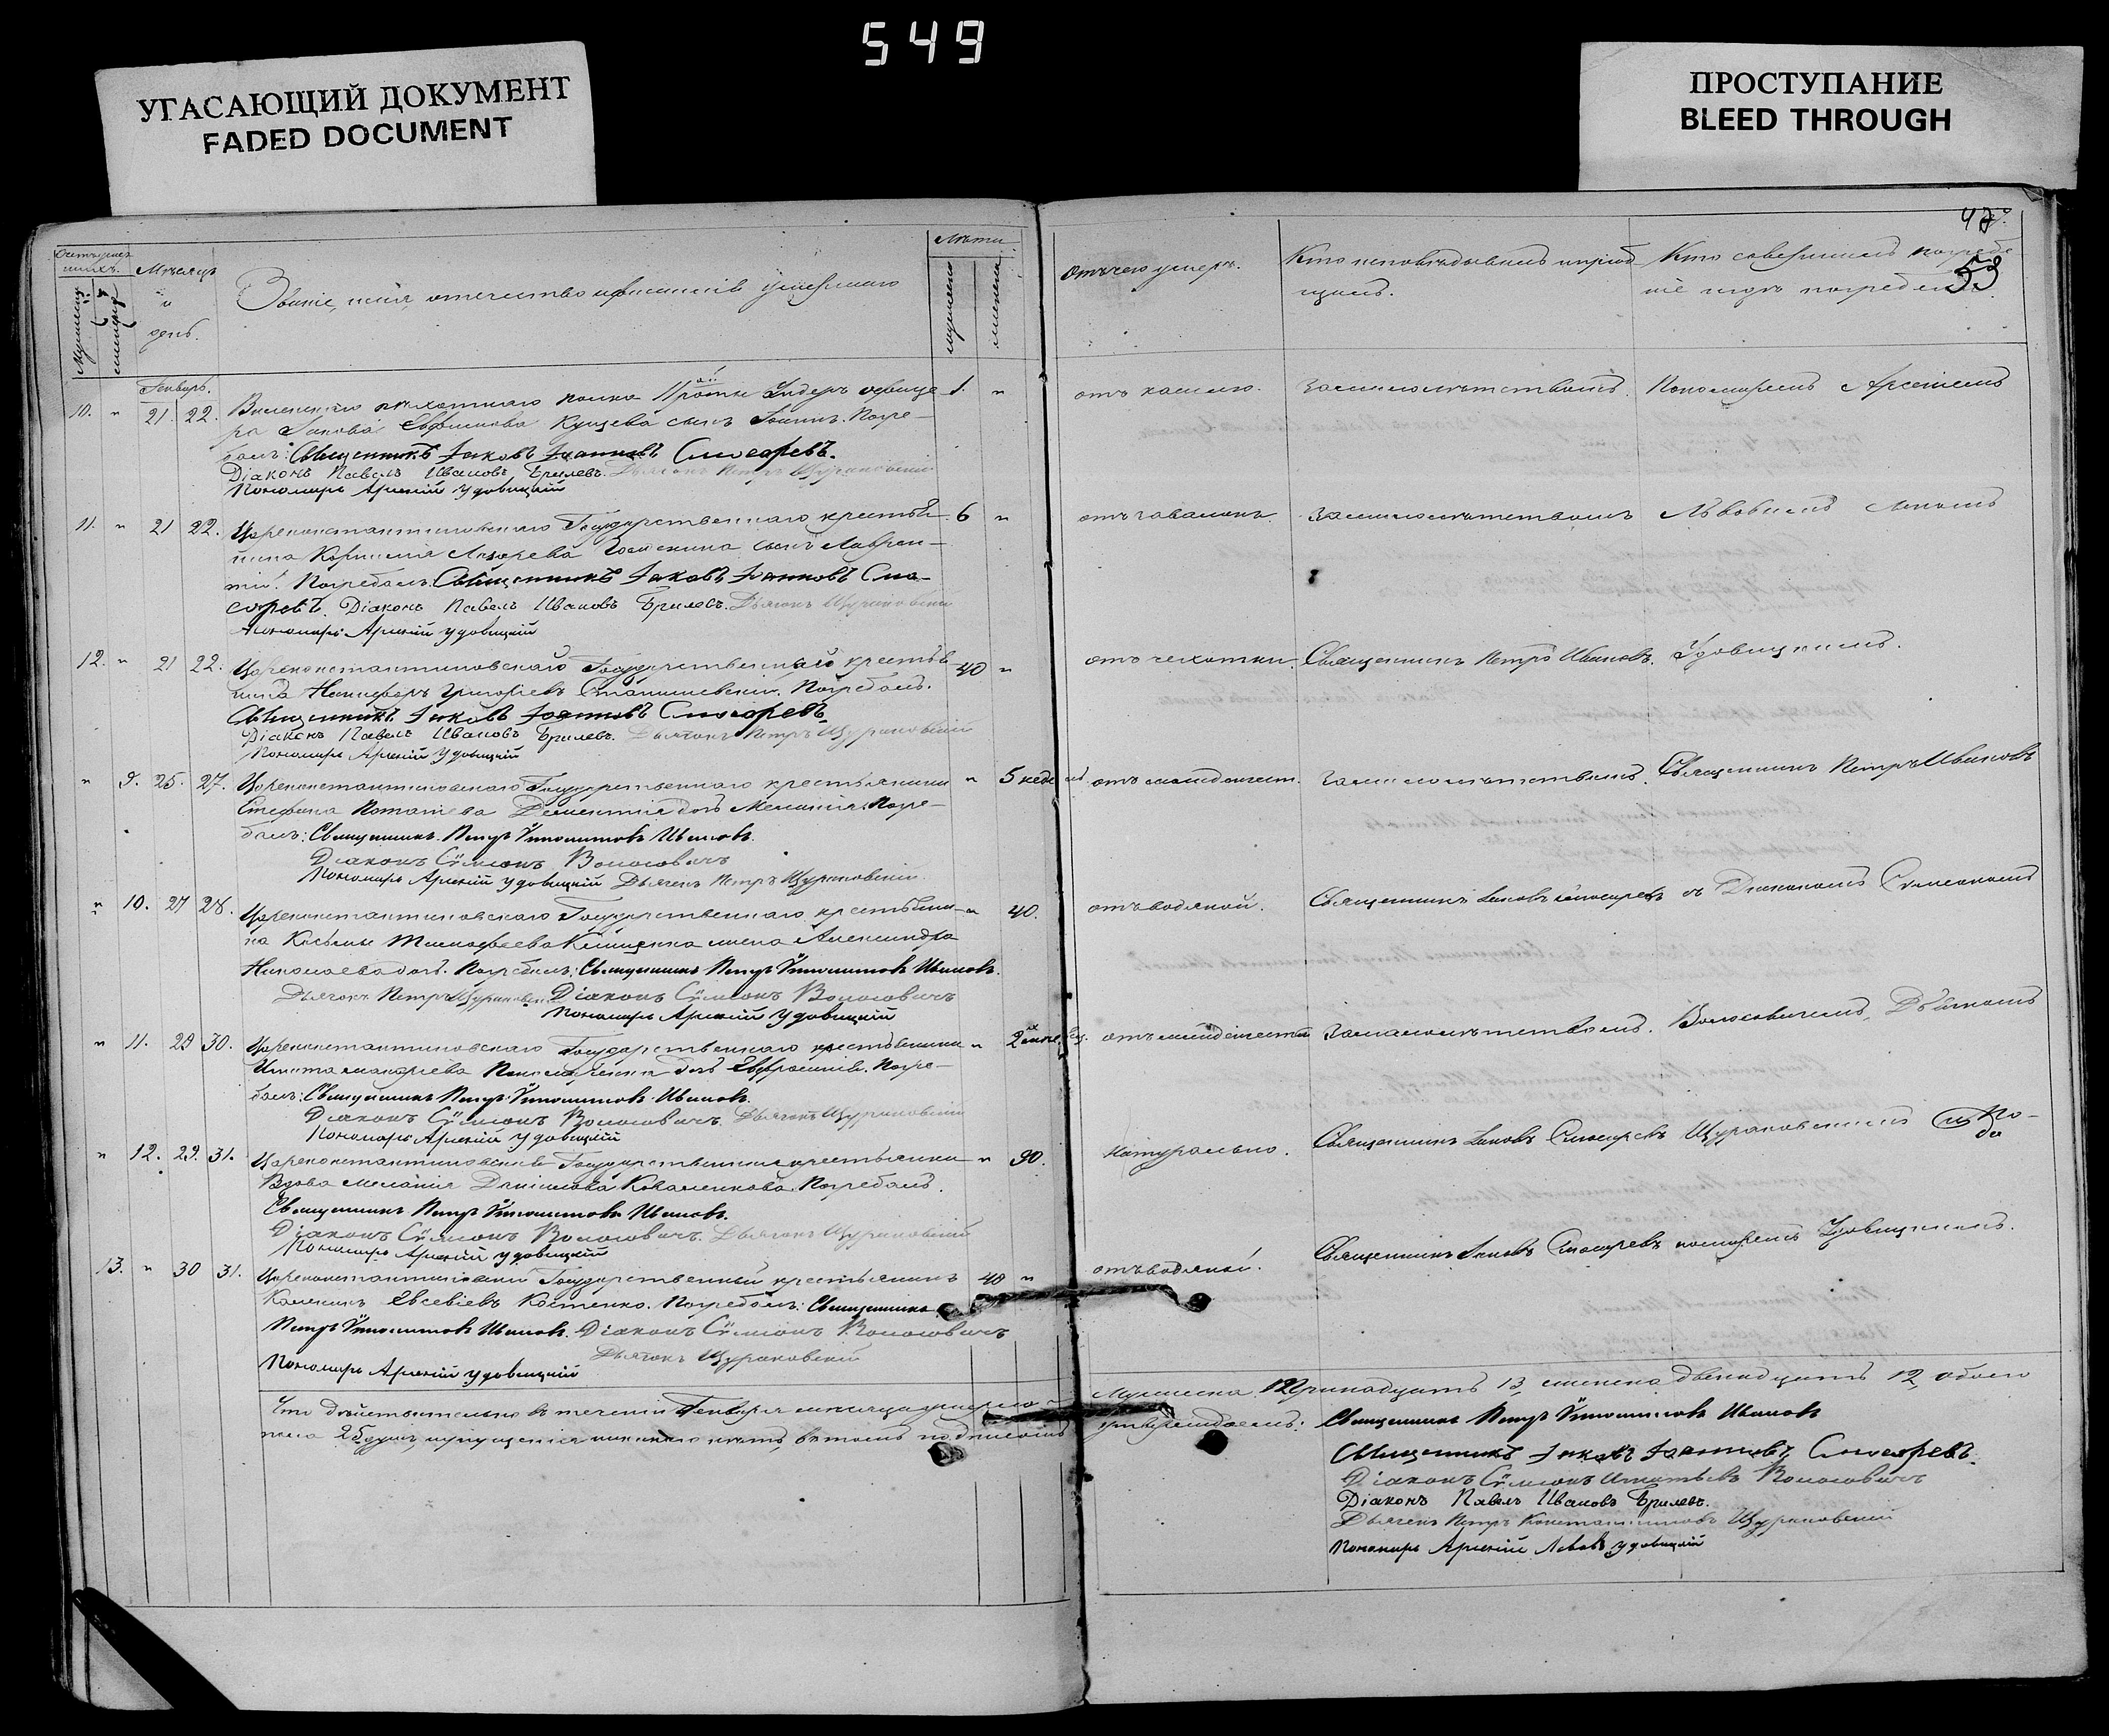 549
УГАСАЮЩИЙ ДОКУМЕНТ
FADED DOCUMENT
ПРОСТУПАНИЕ
BLEED THROUGH
47
53
Мѣсяцъ
и
день.
Званіе, имя, отчество и фамилія умершаго
Лѣта
мужеска
женска
отъ чего умеръ.
Кто исповѣдывалъ и пріобщалъ.
Кто совершалъ погребеніе и гдѣ погребены.
Генварь.
10. " 21 22.
пѣхотнаго полка Унтеръ офице-
ра Іакова сынъ Іоаннъ. Погре-
балъ: Священникъ Іаковъ Іоанновъ Слюсаревъ.
Діаконъ Павелъ Ивановъ Брилевъ. Дьячокъ Петръ Щураковскій
Пономарь Арсеній Удовицкій
1. "
отъ кашлю.
за малолѣтствомъ.
Пономаремъ Арсеніемъ
11. " 21 22.
Цареконстантиновскаго Государственнаго крестья-
нина Корнилія сынъ Лаврен-
тій. Погребалъ: Священникъ Іаковъ Іоанновъ Слю-
саревъ. Діаконъ Павелъ Ивановъ Брилевъ. Дьячокъ Щураковскій
Пономарь Арсеній Удовицкій
6 "
за малолѣтствомъ
Львовымъ
12. " 21 22.
Цареконстантиновскаго Государственнаго крестья-
нина Григоріевъ Погребалъ.
Священникъ Іаковъ Іоанновъ Слюсаревъ
Діаконъ Павелъ Ивановъ Брилевъ. Дьячокъ Петръ Щураковскій
Пономарь Арсеній Удовицкій
40 "
отъ чахотки.
Священникъ Петръ Ивановъ.
Удовицкимъ.
" 9. 25. 27.
Цареконстантиновскаго Государственнаго крестьянина
Стефана дочь Меланія. Погре-
балъ: Священникъ Петръ Ипполитовъ Ивановъ.
Діаконъ Сѵмеонъ Волосовичъ
Пономарь Арсеній Удовицкій Дьячекъ Петръ Щураковскій.
" 5 недель
отъ младенчест.
за малолѣтствомъ.
Священникъ Петръ Ивановъ
" 10. 27 28.
Цареконстантиновскаго Государственнаго крестьяни-
на жена Александра
Николаева дочь. Погребалъ: Священникъ Петръ Ипполитовъ Ивановъ.
Дьячокъ Петръ Щураковскій Діаконъ Сѵмеонъ Волосовичъ
Пономарь Арсеній Удовицкій
" 40.
отъ водяной.
Священникъ Іаковъ Слюсаревъ
съ Діакономъ Сѵмеономъ
" 11. 29 30.
Цареконстантиновскаго Государственнаго крестьянина
дочь Евфросинія. Погре-
балъ: Священникъ Петръ Ипполитовъ Ивановъ.
Діаконъ Сѵмеонъ Волосовичъ. Дьячокъ Щураковскій
Пономарь Арсеній Удовицкій
отъ младенчества
за малолѣтствомъ.
Волосовичемъ, Дьячкомъ
" 12. 29. 31.
Цареконстантиновская Государственная крестьянка
Вдова Меланія Даніилова Коваленкова. Погребалъ.
Священникъ Петръ Ипполитовъ Ивановъ.
Діаконъ Сѵмеонъ Волосовичъ. Дьячокъ Щураковскій
Пономарь Арсеній Удовицкій
" 90.
натурально.
Священникъ Іаковъ Слюсаревъ
Щураковскимъ и По-
13. " 30 31.
Цареконстантиновскій Государственный крестьянинъ
Евсевіевъ Костенко. Погребалъ: Священникъ
Петръ Ипполитовъ Ивановъ. Діаконъ Сѵмеонъ Волосовичъ
Дьячокъ Щураковскій
Пономарь Арсеній Удовицкій
40 "
отъ водяной.
Священникъ Іаковъ Слюсаревъ
номаремъ Удовицкимъ.
Что дѣйствительно въ теченіи Генваря мѣсяца умерло
Мужеска Тринадцать 13, женска двенадцать 12, обоего
пола 25 душъ, въ томъ подписомъ
утверждаемъ:
Священникъ Петръ Ипполитовъ Ивановъ
Священникъ Іаковъ Іоанновъ Слюсаревъ.
Діаконъ Сѵмеонъ Игнатьевъ Волосовичъ
Діаконъ Павелъ Ивановъ Брилевъ.
Дьячекъ Петръ Константиновъ Щураковскій
Пономарь Арсеній Львовъ Удовицкій